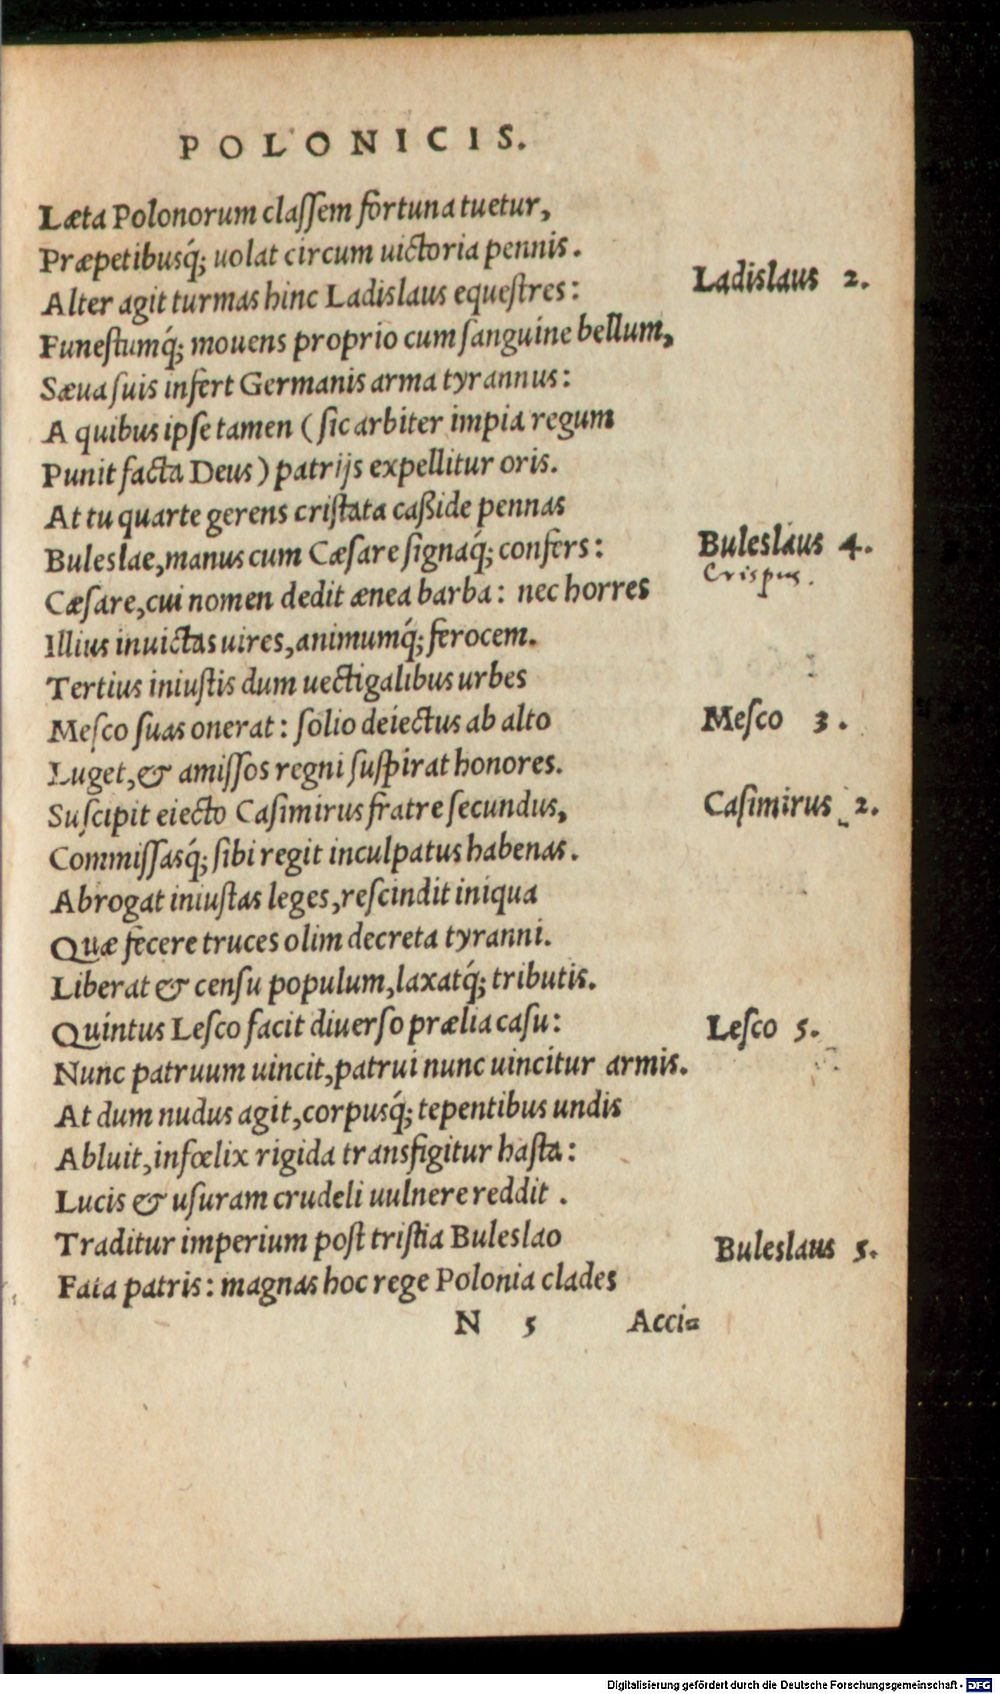 POLONICIS.
Læta Polonorum claſſem fortuna tuetur,
Præpetibusq́; uolat circum uictoria pennis.
Alter agit turmas hinc Ladislaus equeſtres:
Ladislaus 2.
Funeſtumq́; mouens proprio cum ſanguine bellum,
Sæua ſuis infert Germanis arma tyrannus:
A quibus ipſe tamen (ſic arbiter impia regum
Punit facta Deus) patrijs expellitur oris.
At tu quarte gerens criſtata caßide pennas
Buleslae, manus cum Cæſare ſignaq́; confers:
Buleslaus 4.
Crispus.
Cæſare, cui nomen dedit ænea barba: nec horres
Illius inuictas uires, animumq́; ferocem.
Tertius iniuſtis dum uectigalibus urbes
Meſco ſuas onerat: ſolio deiectus ab alto
Meſco 3.
Luget, & amiſſos regni ſuſpirat honores.
Suſcipit eiecto Caſimirus fratre ſecundus,
Caſimirus 2.
Commiſſasq́; ſibi regit inculpatus habenas.
Abrogat iniuſtas leges, reſcindit iniqua
Quæ fecere truces olim decreta tyranni.
Liberat & cenſu populum, laxatq́; tributis.
Quintus Leſco facit diuerſo prælia caſu:
Leſco 5.
Nunc patruum uincit, patrui nunc uincitur armis.
At dum nudus agit, corpusq́; tepentibus undis
Abluit, infœlix rigida transfigitur haſta:
Lucis & uſuram crudeli uulnere reddit.
Traditur imperium poſt triſtia Buleslao
Buleslaus 5.
Fata patris: magnas hoc rege Polonia clades
N 5 Acci=
Digitalisierung gefördert durch die Deutsche Forschungsgemeinschaft - DFG